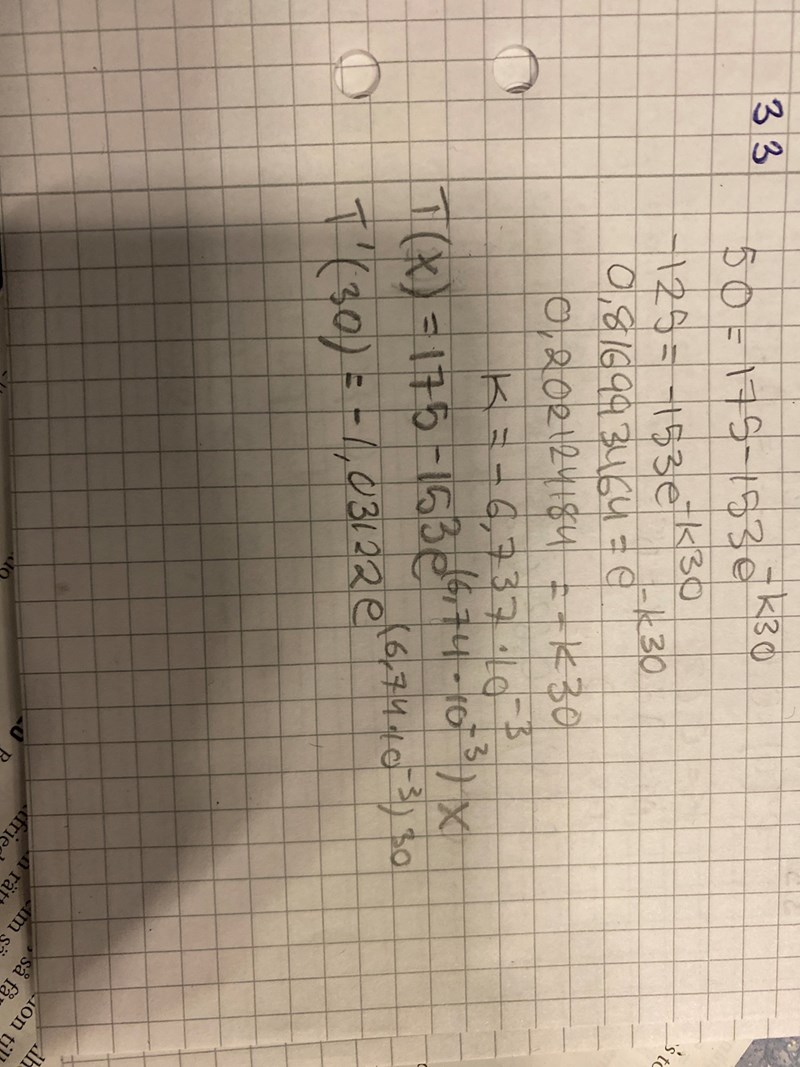 33
50 = 175 - 153e^-k30
-125 = -153e^-k30
0,816993464 = e^-k30
0,202124184 = -k30
K = -6,737·10^-3
T(x) = 175 - 153e^(6,74·10^-3)x
T'(30) = -1,03122e^(6,74·10^-3)30